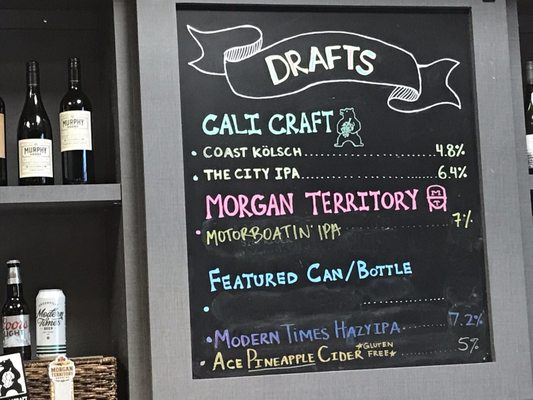 DRAFTS
CALI CRAFT
• COAST KÖLSCH 4.8%
• THE CITY IPA 6.4%
MORGAN TERRITORY
• MOTORBOATIN' IPA 7%
FEATURED CAN/BOTTLE
•
• MODERN TIMES HAZY IPA 7.2%
• ACE PINEAPPLE CIDER *GLUTEN FREE* 5%
MURPHY
MURPHY
Coors
LIGHT
Modern
Times
MORGAN
TERRITORY